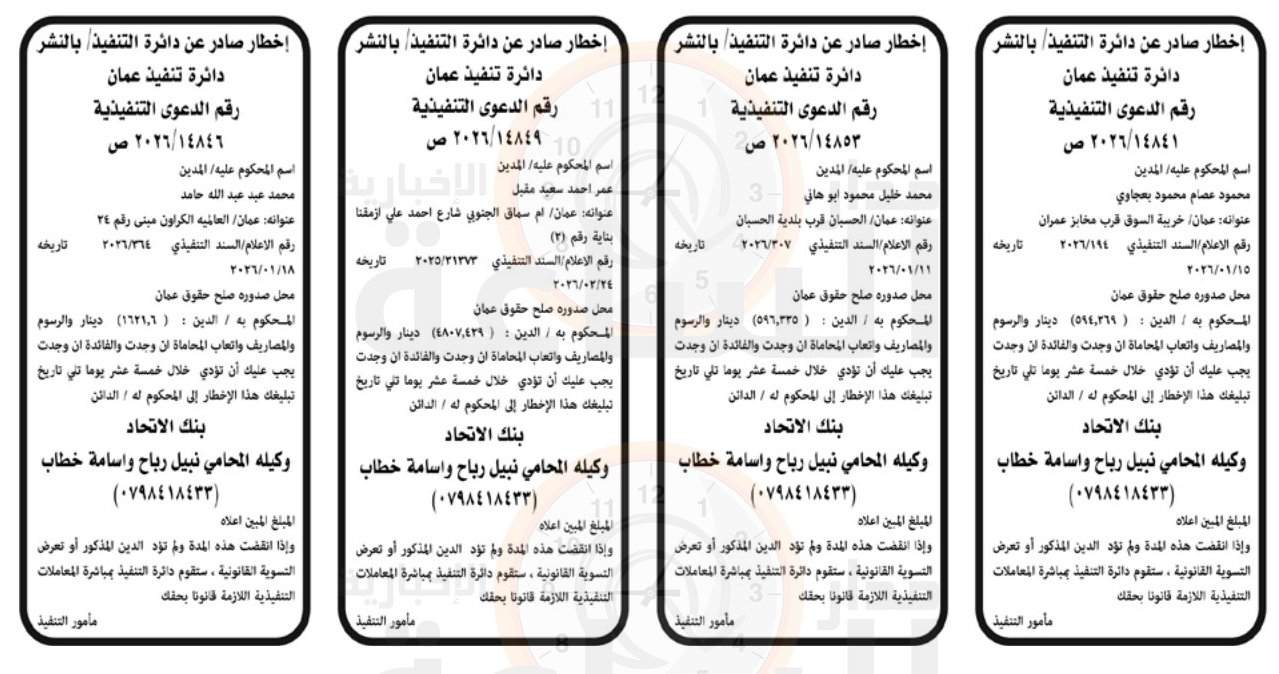 إخطار صادر عن دائرة التنفيذ/ بالنشر
دائرة تنفيذ عمان
رقم الدعوى التنفيذية
٢٠٢٦/١٤٨٤١ ص
اسم المحكوم عليه/ المدين
محمود عصام محمود بعجاوي
عنوانه: عمان/ خريبة السوق قرب مخابز عمران
رقم الاعلام/السند التنفيذي ٢٠٢٦/١٩٤ تاريخه
٢٠٢٦/٠١/١٥
محل صدوره صلح حقوق عمان
المــحكوم به / الدين : ( ٥٩٤,٢٦٩) دينار والرسوم
والمصاريف واتعاب المحاماة ان وجدت والفائدة ان وجدت
يجب عليك أن تؤدي خلال خمسة عشر يوما تلي تاريخ
تبليغك هذا الإخطار إلى المحكوم له / الدائن
بنك الاتحاد
وكيله المحامي نبيل رباح واسامة خطاب
(٠٧٩٨٤١٨٤٣٣)
المبلغ المبين اعلاه
وإذا انقضت هذه المدة ولم تؤد الدين المذكور أو تعرض
التسوية القانونية ، ستقوم دائرة التنفيذ بمباشرة المعاملات
التنفيذية اللازمة قانونا بحقك
مأمور التنفيذ
إخطار صادر عن دائرة التنفيذ/ بالنشر
دائرة تنفيذ عمان
رقم الدعوى التنفيذية
٢٠٢٦/١٤٨٥٣ ص
اسم المحكوم عليه/ المدين
محمد خليل محمود ابو هاني
عنوانه: عمان/ الحسبان قرب بلدية الحسبان
رقم الاعلام/السند التنفيذي ٢٠٢٦/٣٠٧ تاريخه
٢٠٢٦/٠١/١١
محل صدوره صلح حقوق عمان
المــحكوم به / الدين : ( ٥٩٦,٣٣٥) دينار والرسوم
والمصاريف واتعاب المحاماة ان وجدت والفائدة ان وجدت
يجب عليك أن تؤدي خلال خمسة عشر يوما تلي تاريخ
تبليغك هذا الإخطار إلى المحكوم له / الدائن
بنك الاتحاد
وكيله المحامي نبيل رباح واسامة خطاب
(٠٧٩٨٤١٨٤٣٣)
المبلغ المبين اعلاه
وإذا انقضت هذه المدة ولم تؤد الدين المذكور أو تعرض
التسوية القانونية ، ستقوم دائرة التنفيذ بمباشرة المعاملات
التنفيذية اللازمة قانونا بحقك
مأمور التنفيذ
إخطار صادر عن دائرة التنفيذ/ بالنشر
دائرة تنفيذ عمان
رقم الدعوى التنفيذية
٢٠٢٦/١٤٨٤٩ ص
اسم المحكوم عليه/ المدين
عمر احمد سعيد مقبل
عنوانه: عمان/ ام سماق الجنوبي شارع احمد علي ازمقنا
بناية رقم (٢)
رقم الاعلام/السند التنفيذي ٢٠٢٥/٣١٣٧٣ تاريخه
٢٠٢٦/٠٢/٢٤
محل صدوره صلح حقوق عمان
المــحكوم به / الدين : ( ٤٨٠٧,٤٣٩) دينار والرسوم
والمصاريف واتعاب المحاماة ان وجدت والفائدة ان وجدت
يجب عليك أن تؤدي خلال خمسة عشر يوما تلي تاريخ
تبليغك هذا الإخطار إلى المحكوم له / الدائن
بنك الاتحاد
وكيله المحامي نبيل رباح واسامة خطاب
(٠٧٩٨٤١٨٤٣٣)
المبلغ المبين اعلاه
وإذا انقضت هذه المدة ولم تؤد الدين المذكور أو تعرض
التسوية القانونية ، ستقوم دائرة التنفيذ بمباشرة المعاملات
التنفيذية اللازمة قانونا بحقك
مأمور التنفيذ
إخطار صادر عن دائرة التنفيذ/ بالنشر
دائرة تنفيذ عمان
رقم الدعوى التنفيذية
٢٠٢٦/١٤٨٤٦ ص
اسم المحكوم عليه/ المدين
محمد عبد عبد الله حامد
عنوانه: عمان/ العالميه الكراون مبنى رقم ٢٤
رقم الاعلام/السند التنفيذي ٢٠٢٦/٣٦٤ تاريخه
٢٠٢٦/٠١/١٨
محل صدوره صلح حقوق عمان
المــحكوم به / الدين : ( ١٦٢١,٦) دينار والرسوم
والمصاريف واتعاب المحاماة ان وجدت والفائدة ان وجدت
يجب عليك أن تؤدي خلال خمسة عشر يوما تلي تاريخ
تبليغك هذا الإخطار إلى المحكوم له / الدائن
بنك الاتحاد
وكيله المحامي نبيل رباح واسامة خطاب
(٠٧٩٨٤١٨٤٣٣)
المبلغ المبين اعلاه
وإذا انقضت هذه المدة ولم تؤد الدين المذكور أو تعرض
التسوية القانونية ، ستقوم دائرة التنفيذ بمباشرة المعاملات
التنفيذية اللازمة قانونا بحقك
مأمور التنفيذ